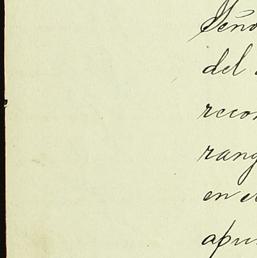 Seño
del
recon
rang
en e
apu